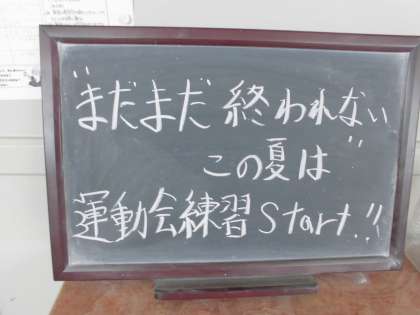 "まだまだ 終われない
この夏は"
運動会練習 Start!!